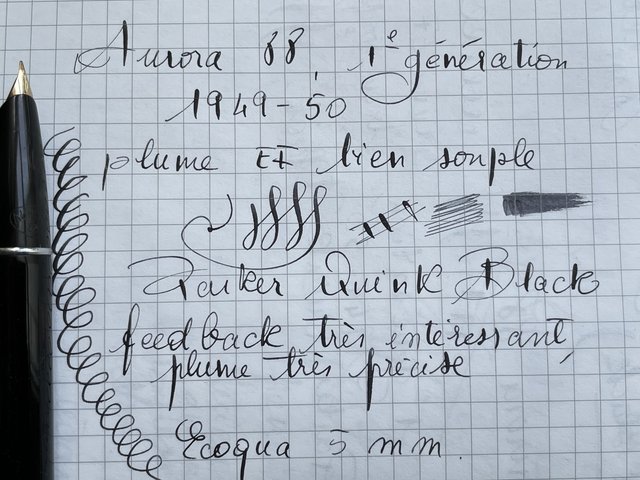 Aurora 88, 1e génération
1949-50
plume EF bien souple
Parker Quink Black
feedback très intéressant,
plume très précise
Ecoqua 5 mm.